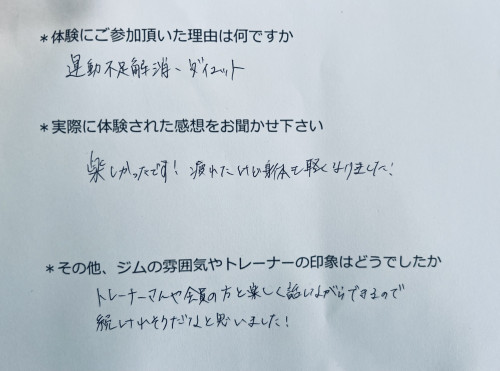 *体験にご参加頂いた理由は何ですか
運動不足解消、ダイエット
*実際に体験された感想をお聞かせ下さい
楽しかったです! 疲れたけど身体も軽くなりました!
*その他、ジムの雰囲気やトレーナーの印象はどうでしたか
トレーナーさんや会員の方と楽しく話しながらできるので
続けれそうだなと思いました!